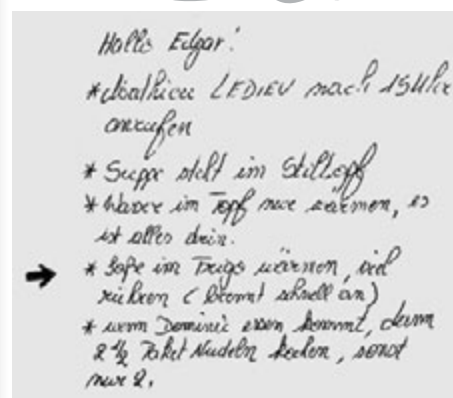 Hallo Edgar!
* Mathieu LEDIEU nach 15 Uhr
anrufen
* Suppe steht im Stilltopf
* Wasser im Topf nur wärmen, es
ist alles drin.
* Soße im Trigo wärmen, viel
rühren (brennt schnell an)
* wenn Dominic essen kommt, dann
2 ½ Paket Nudeln kochen, sonst
nur 2.